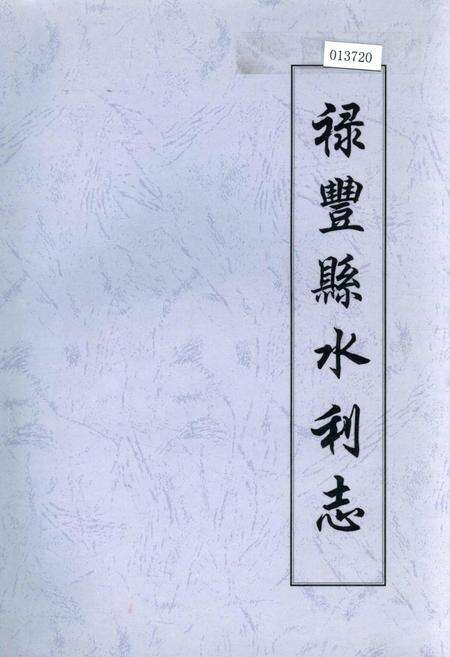 013720
禄豐縣水利志